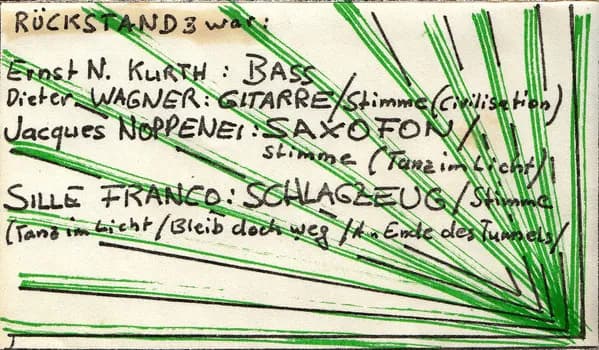 RÜCKSTAND 3 war:
Ernst N. KURTH: BASS
Dieter WAGNER: GITARRE/Stimme (Civilisation)
Jacques NOPPENEI: SAXOFON/
Stimme (Tanz im Licht)
SILLE FRANCO: SCHLAGZEUG/Stimme
(Tanz im Licht/Bleib doch weg/Am Ende des Tunnels/